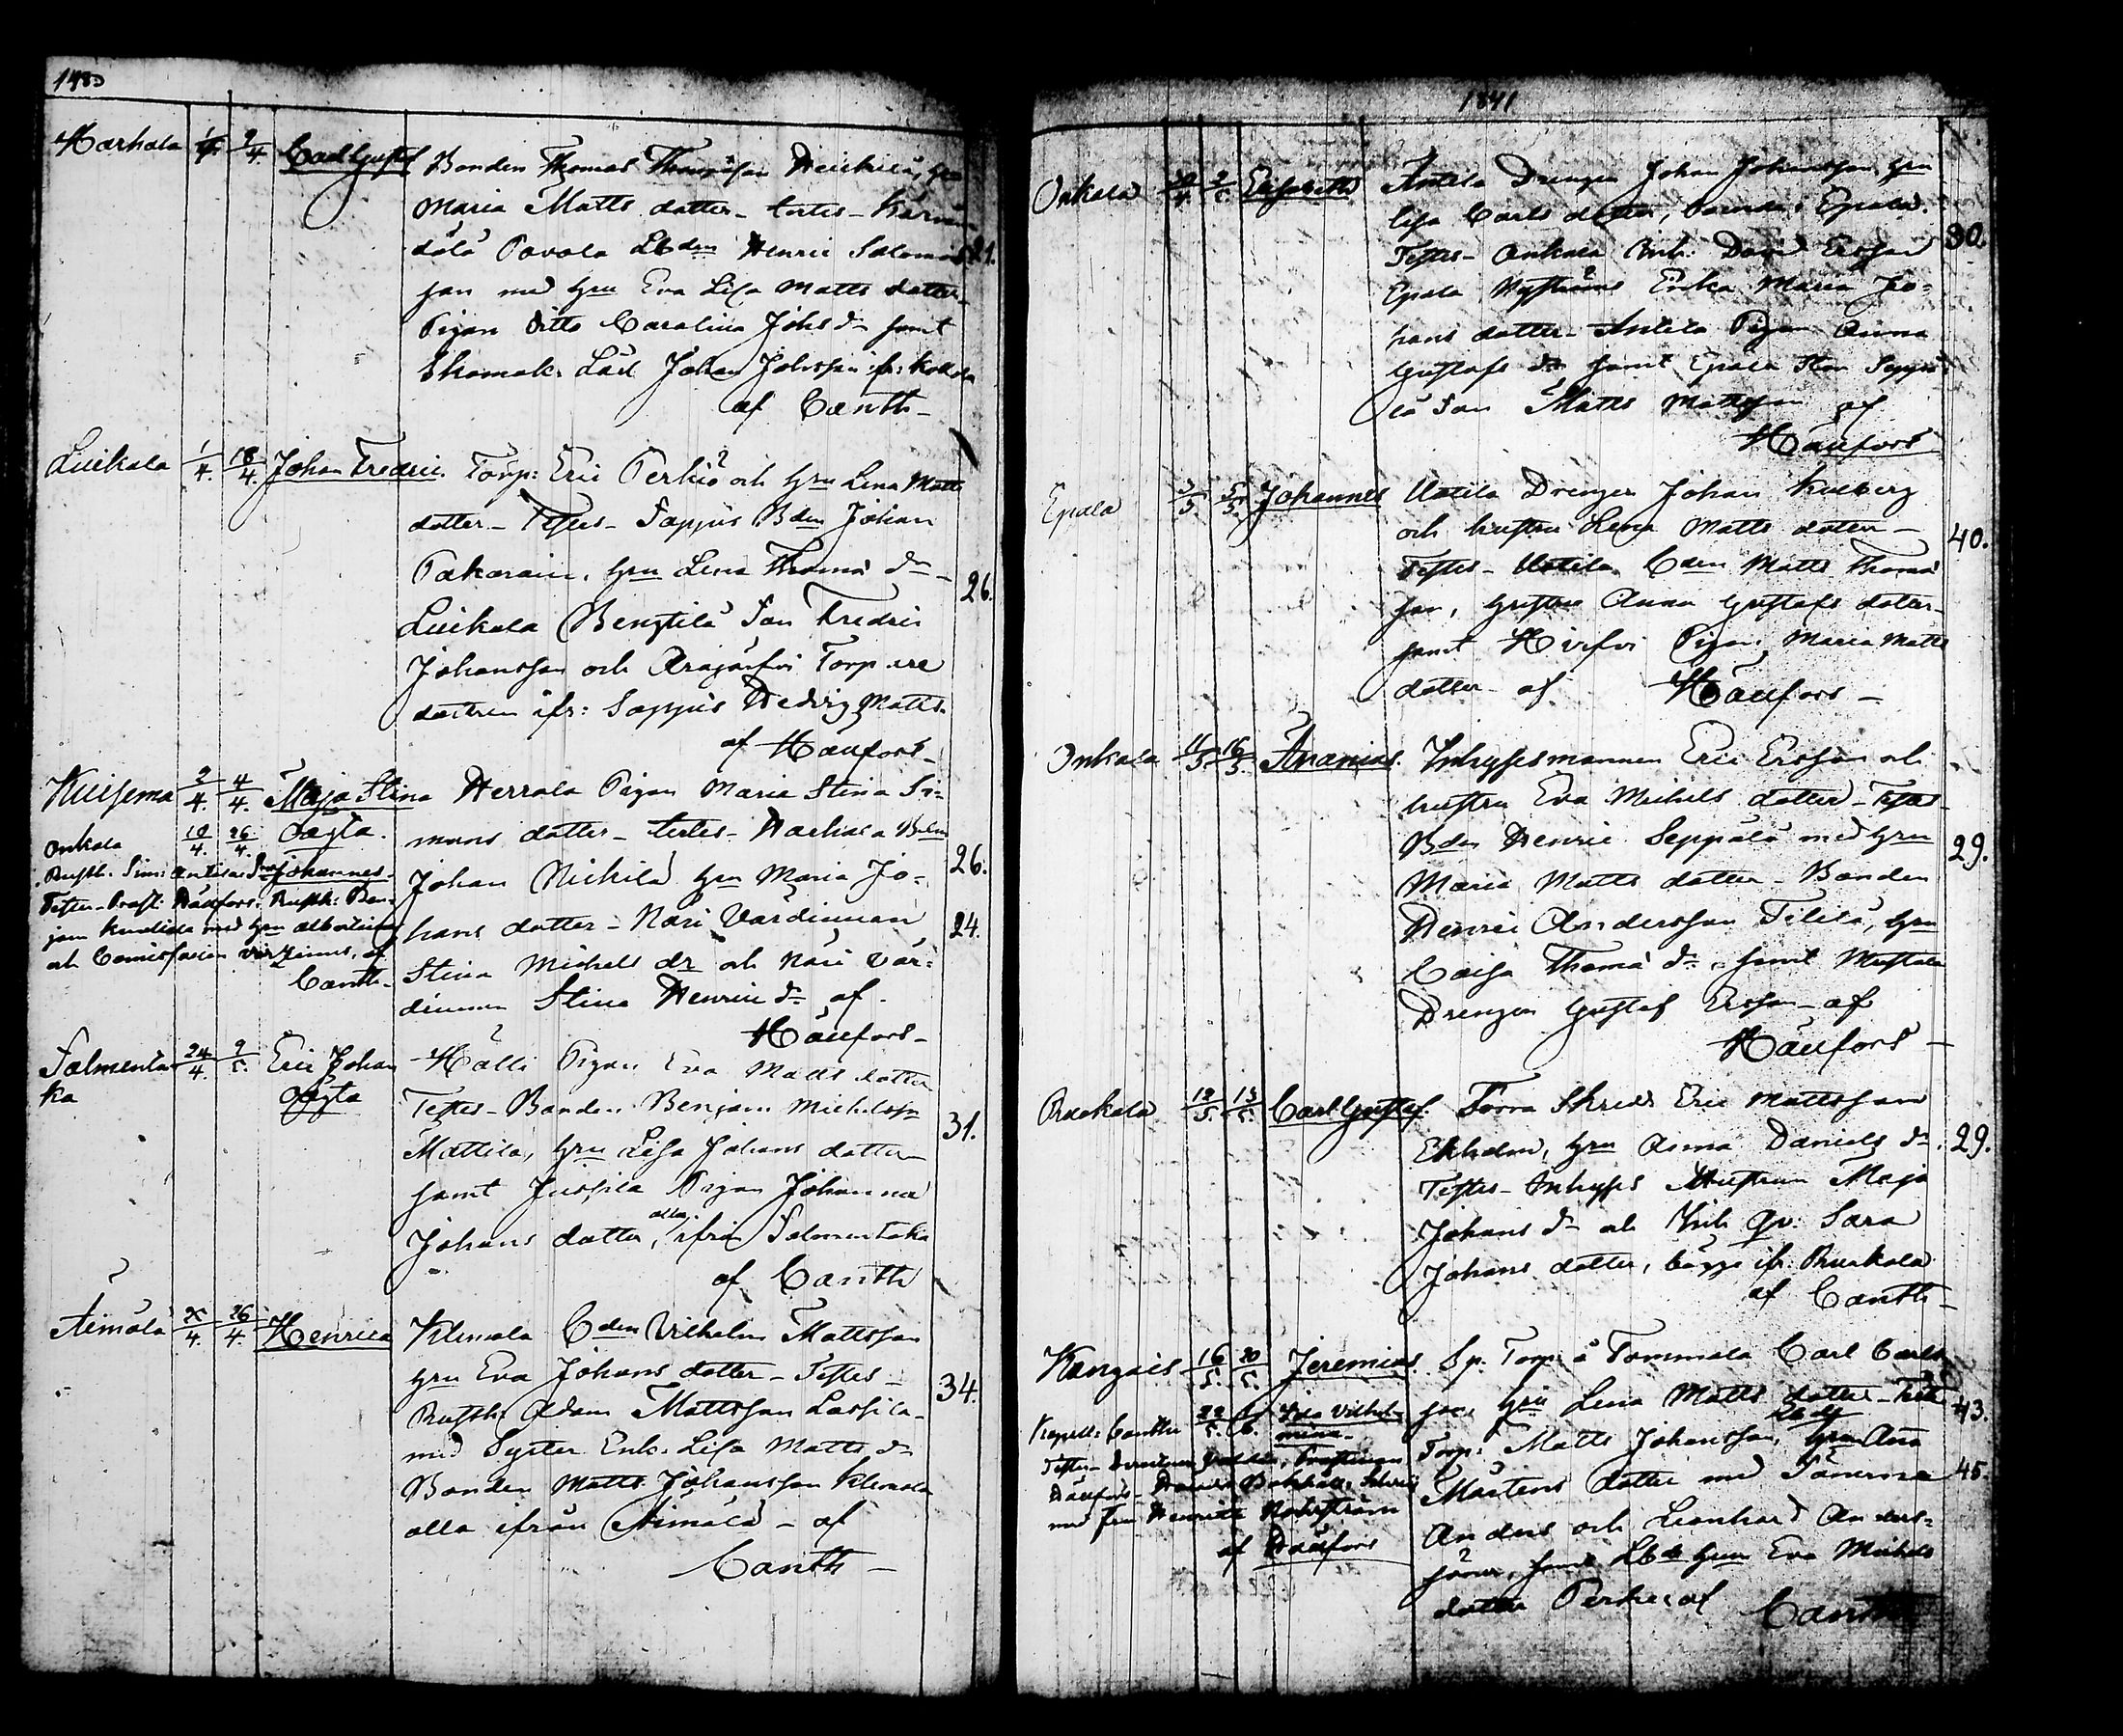 Harhala 4 9/4 Carl Gustaf Bonden Thomas Thomasson Heickilä, hru
Maria Matts dotter - testes - Kärvän-
dälä Pavola Lbdn Henric Salomos 21.
son med hru Eva Lisa Matts dotter
Pigan ditto Carolina Johs dr samt
Skomak. Lärl Johan Johsson ifr: Kokkola
af Canth -
Luikala 1/4. 18/4. Johan Fredric. Torp: Eric Perkiö och hru Lena Matts
dotter - Testes - Sappus Bden Johan
Pakarain, hru Lena Thomæ dr - 26.
Luikala Bengtilä Son Fredric
Johansson och Arajärfvi Torp are
dottren ifr: Sappus Hedvig Matts.
af Häufors -
Kuisema 2/4. 4/4. Maja Stina Herrala Pigan Maria Stina Si-
oägta. mons dotter - testes - Harhala Bden
Johan Nickilä hru Maria Jo- 26.
hans dotter - Nari Värdinnan 24.
Stina Michels dr och Nari Vär-
dinnan Stina Henrics dr af -
Häufors -
Onkala 19/4. 26/4.
Rusth. Sim: Antilas Son Johannes.
Testes - Prost: Häufors, Rusth: Ben-
jam Kundiala med hru Albertina
och Comissarien Virzenius, af
Canth -
Salmenta- 24/4. 9/5. Eric Johan Hälli Pigan Eva Matts dotter
ka oägta Testes - Bonden Benjam Michelsson
Mattila, hru Lisa Johans dotter 31.
samt Jussila Pigan Johanna
Johans dotter, alla ifrån Salmentaka
af Canth
Aimälä 4. 26/4. Henrica Klemola Bden Vilhelm Mattsson
hru Eva Johans dotter - Testes - 34.
Rusth. Adam Mattsson Lassila
med Syster Enk. Lisa Matts dr
Bonden Matts Johansson Klemola
alla ifrån Aimälä - af
Canth -
1841
Onkala Elisabeth Antila Drengen Johan Johansson, hru
Lisa Carls dotter, boende i Epala. 30.
Testes - Onkala Inh: David Ersson
Epala Erika Maria Jo-
hans dotter - Antila Pigan Anna
Gustafs dr samt Epala Stor Seppä-
lä Son Matts Mattsson af
Häufors
Epala 3/5. 5/5. Johannes Uotila Drengen Johan Kulberg
och hustru Lena Matts dotter - 40.
Testes - Uotila Bden Matts Thomæ
son, hustru Anna Gustafs dotter
samt Hirfvi Pigan Maria Matts
dotter - af Häufors -
Onkala 11/5 16/5. Ananias. Inhysesmannen Eric Ersson och
hustru Eva Michels dotter - Testes
Bden Henric Seppälä med hru 29.
Maria Matts dotter - Bonden
Henric Andersson Tililä, hru
Caisa Thomæ dr samt Mustala
Drengen Gustaf Ersson - af
Häufors -
Ruokola 12/5. 13/5. Carl Gustaf. Sorra Skredd Eric Mattsson
Ekholm, hru Anna Daniels dr 29.
Testes - Inhyses Hustrun Maja
Johans dr och Inh. Qv: Sara
Johans dotter, bägge ifr: Ruokola
af Canth -
Kangais 16/5. 20/5. Jeremias. Sp. Torp: å Tommola Carl Carls
son, hru Lena Matts dotter - Test. 43.
Torp: Matts Johansson, hru Ana
Mårtens dotter med Sönerna 45.
Anders och Leonhard Anders-
söner, samt Lbds hru Eva Michels
dotter Perkiö af Canth
Kapell: Canths Ida Vilhel-
mina -
Häufors -
med fru Henrica
af Häufors